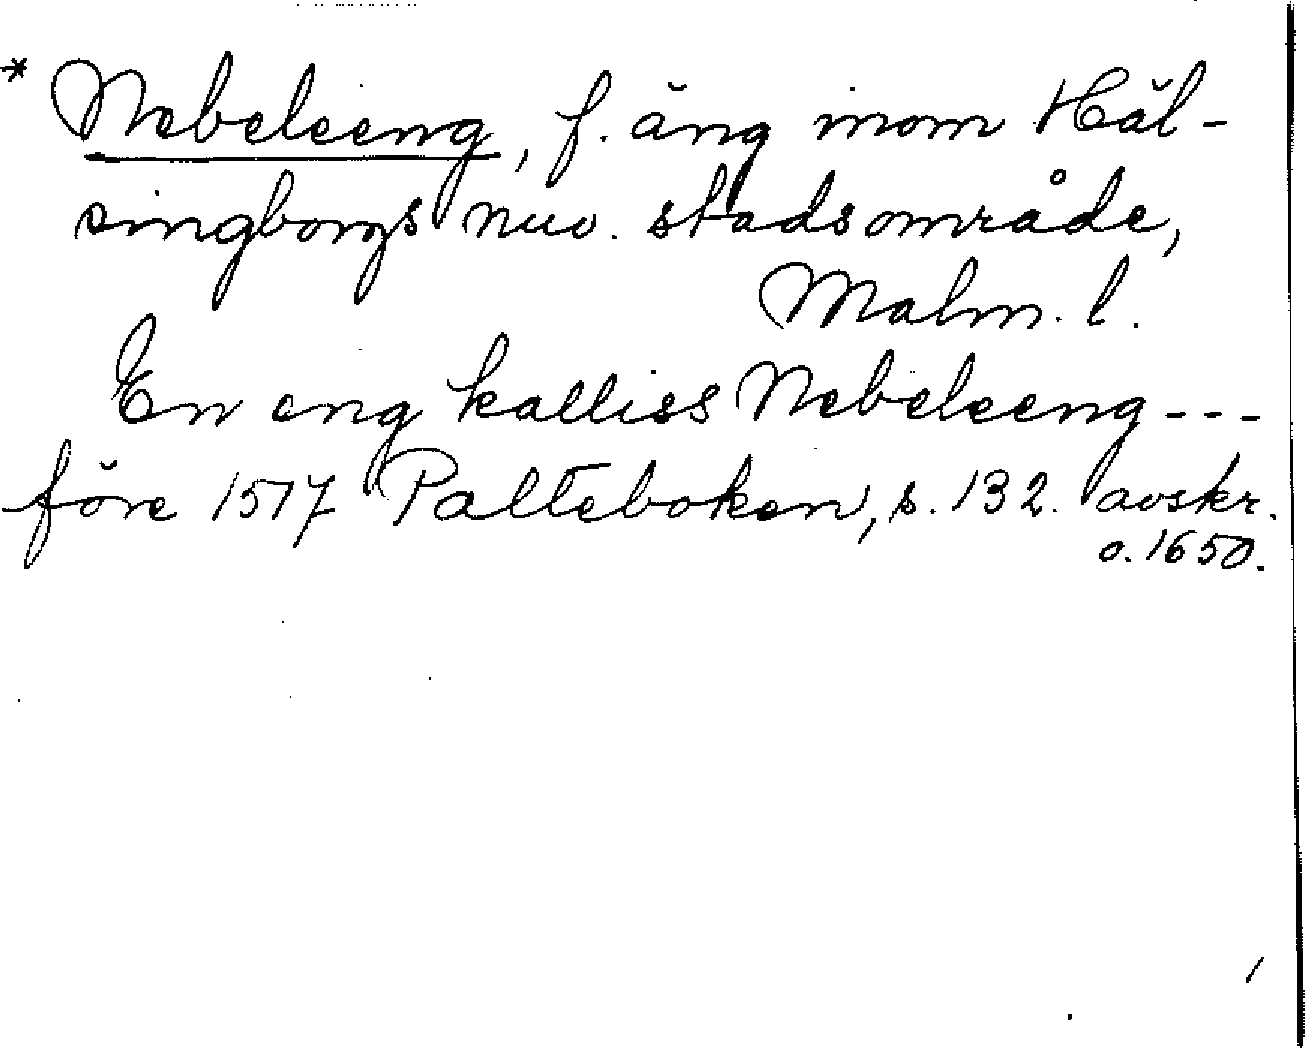 * Nebeleeng, f. äng inom Häl-
singborgs nuv. stadsområde,
Malm. l.
En eng kalliss Nebeleeng ---
före 1517 Palteboken, s. 132. avskr.
o. 1650.